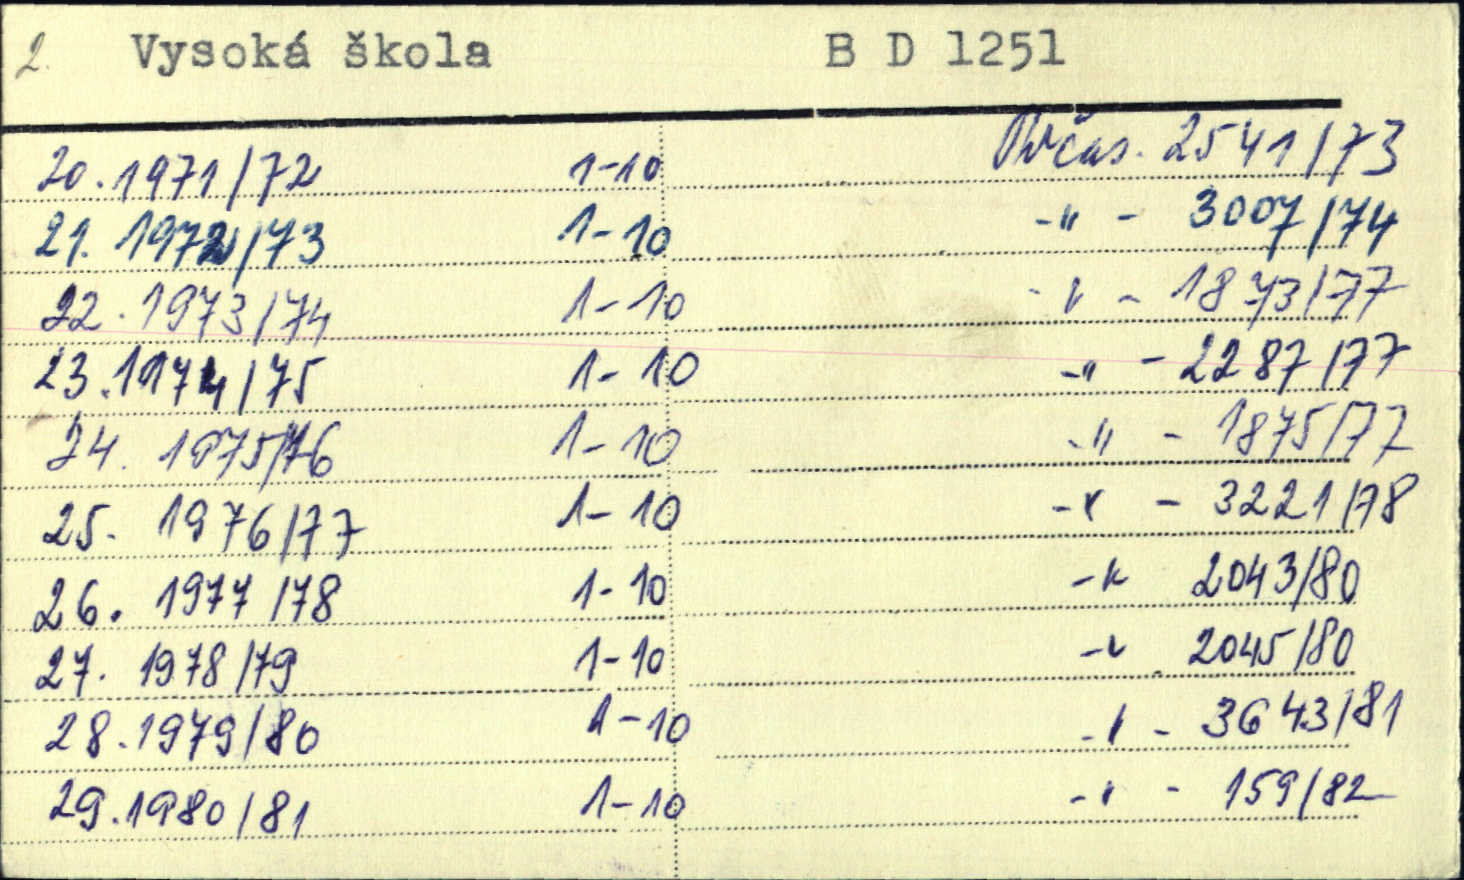 2. Vysoká škola B D 1251
20. 1971/72 1-10 Přičas. 2541/73
21. 1972/73 1-10 -"- 3007/74
22. 1973/74 1-10 -"- 1873/77
23. 1974/75 1-10 -"- 2287/77
24. 1975/76 1-10 -"- 1875/77
25. 1976/77 1-10 -"- 3221/78
26. 1977/78 1-10 -"- 2043/80
27. 1978/79 1-10 -"- 2045/80
28. 1979/80 1-10 -"- 3643/81
29. 1980/81 1-10 -"- 159/82